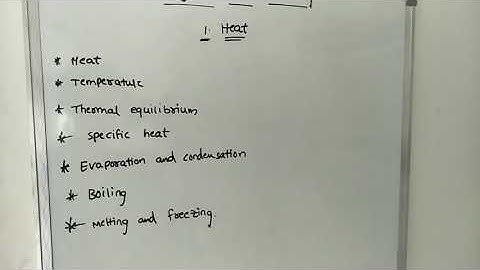 1. Heat
* Heat
* Temperature
* Thermal equilibrium
* specific heat
* Evaporation and condensation
* Boiling
* Melting and freezing.